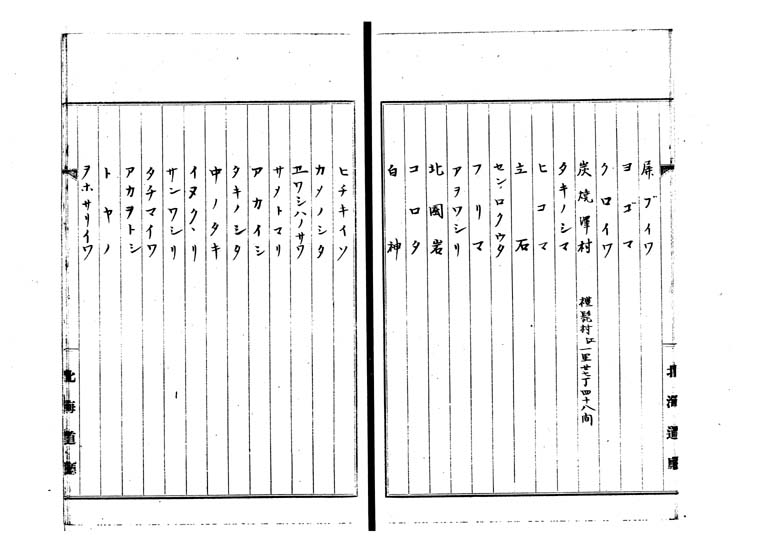 屏ブイワ
ヨゴマ
クロイワ
炭焼澤村 禮髭村ヨリ一里廿七丁四十八間
タキノシマ
ヒコマ
立石
センロクウタ
フリマ
アヲワシリ
北國岩
コロタ
白神
北海道廳
ヒチキイソ
カメノシタ
ヱワシハノサワ
サメトマリ
アカイシ
タキノシタ
中ノタキ
イヌクヽリ
サンワシリ
タチマイワ
アカヲトシ
トヤノ
ヲホサリイワ
北海道廳